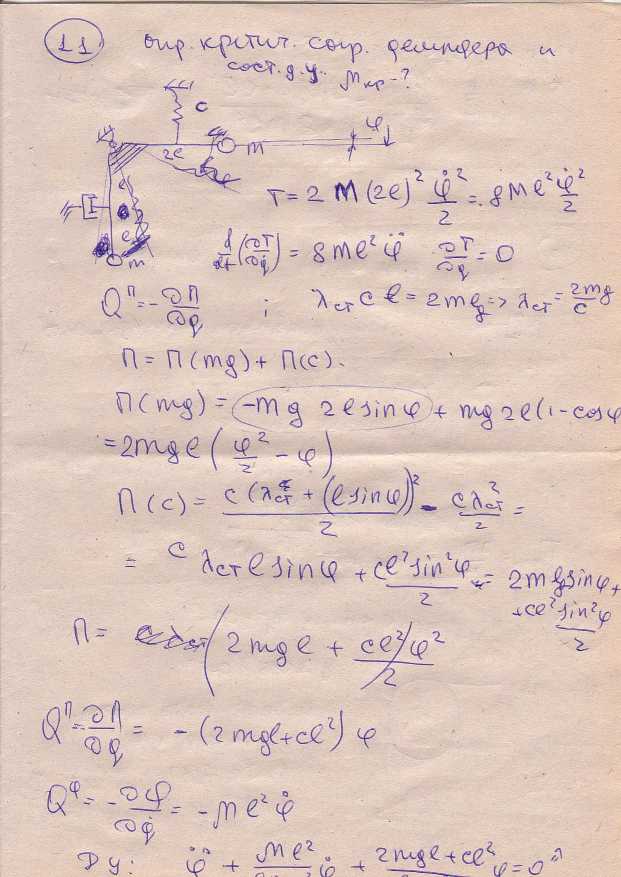 11 опр. критич. сопр. демпфера и
сост. д.у. μкр-?
c
φ
2l
m
l
l
m
T = 2 m(2l)² φ̇²/2 = 8ml² φ̇²/2
d/dt (∂T/∂q̇) = 8ml² φ̈ ∂T/∂q = 0
Qᴨ = -∂П/∂q ; λст c l = 2mlg => λст = 2mg/c
П = П(mg) + П(c).
П(mg) = -mg 2l sinφ + mg 2l(1-cosφ
= 2mgl (φ²/2 - φ)
П(c) = c(λст + (l sinφ))²/2 - cλст²/2 =
= c λст l sinφ + cl² sin²φ/2 = 2mlg sinφ +
+ cl² sin²φ/2
П = (2mgl + cl²)φ²/2
Qᴨ = -∂П/∂q = -(2mgl + cl²) φ
Qᶲ = -∂Φ/∂q̇ = -μl² φ̇
ДУ: φ̈ + μl² φ̇ + 2mgl + cl² φ = 0